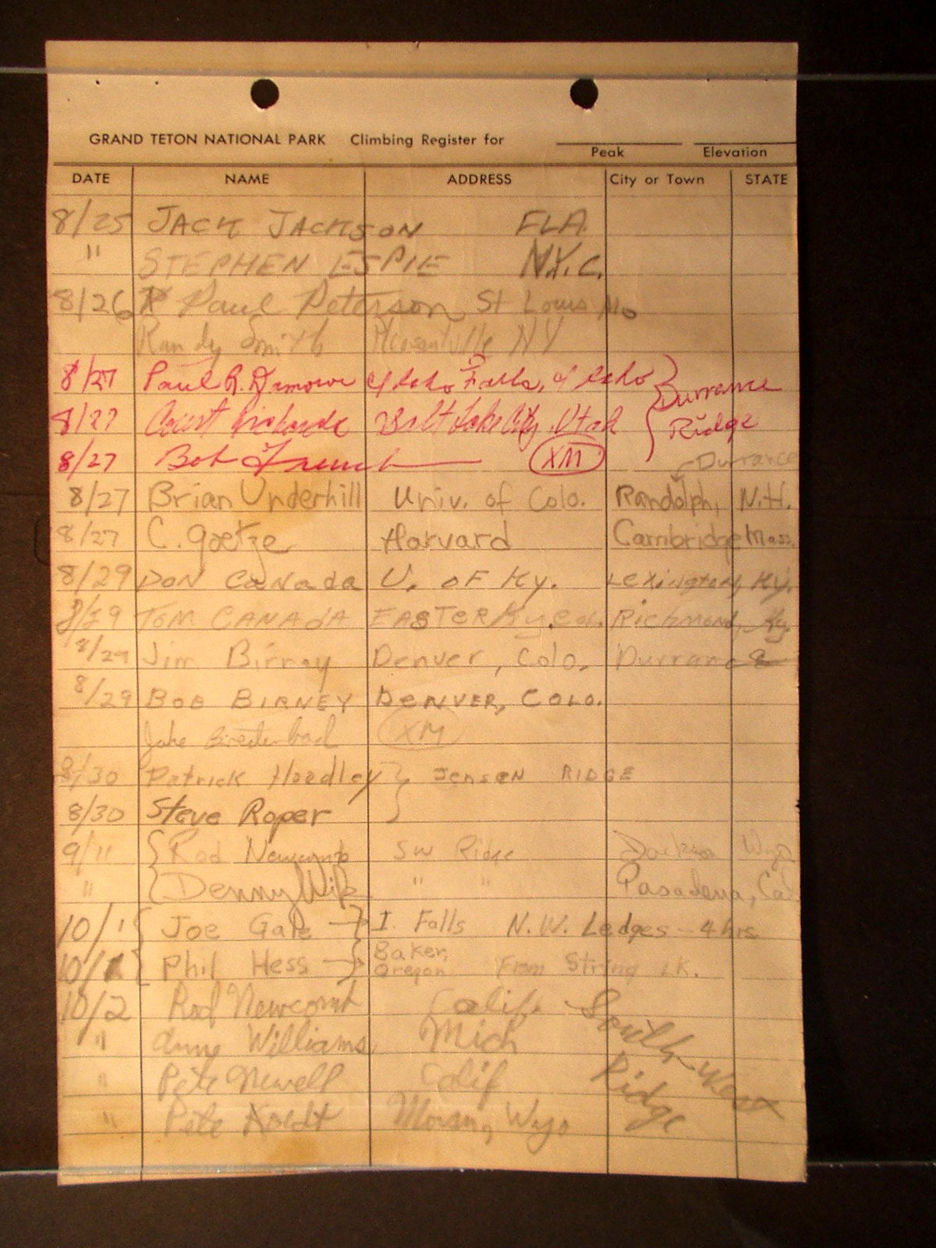 GRAND TETON NATIONAL PARK Climbing Register for
Peak Elevation
DATE NAME ADDRESS City or Town STATE
8/25 JACK JACKSON FLA.
" STEPHEN ESPIE N.Y.C.
8/26 Paul Peterson St Louis Mo
Randy Smith Pleasantville NY
8/27 Paul R. Idaho Falls, Idaho } Durrance
8/27 Court Richards Salt Lake City, Utah Ridge
8/27 Bob French XM Durrance
8/27 Brian Underhill Univ. of Colo. Randolph, N.H.
8/27 C. Goetze Harvard Cambridge Mass.
8/29 DON CANADA U. OF Ky. Lexington, Ky.
8/29 TOM CANADA EASTERN Ky. Richmond, Ky.
8/29 Jim Birney Denver, Colo. Durrance
8/29 BOB BIRNEY DENVER, COLO.
Jake Breitenbach XM
8/30 Patrick Headley } JENSEN RIDGE
8/30 Steve Roper
9/11 { Rod Newcomb SW Ridge Jackson Wyo
" { Denny " " Pasadena, Cal
10/1 { Joe Gale → } I. Falls N.W. Ledges - 4 hrs
10/1 { Phil Hess → } Baker, Oregon From String Lk.
10/2 Rod Newcomb Calif. South West
" Williams, Mich Ridge
" Pete Newell Calif
" Pete Koedt Moran, Wyo